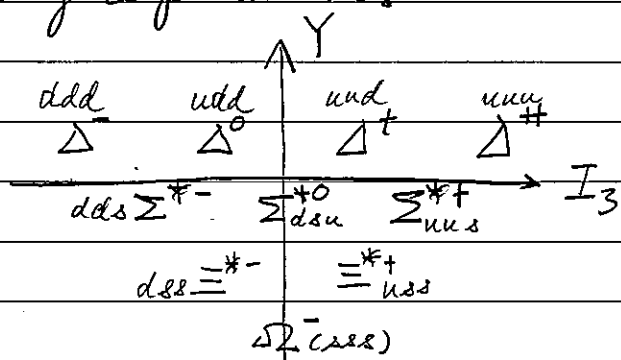 Y
ddd udd uud uuu
Δ⁻ Δ⁰ Δ⁺ Δ⁺⁺
I₃
dds Σ*⁻ Σ*⁰ dsu Σ*⁺ uus
dss Ξ*⁻ Ξ*⁺ uss
Ω⁻ (sss)